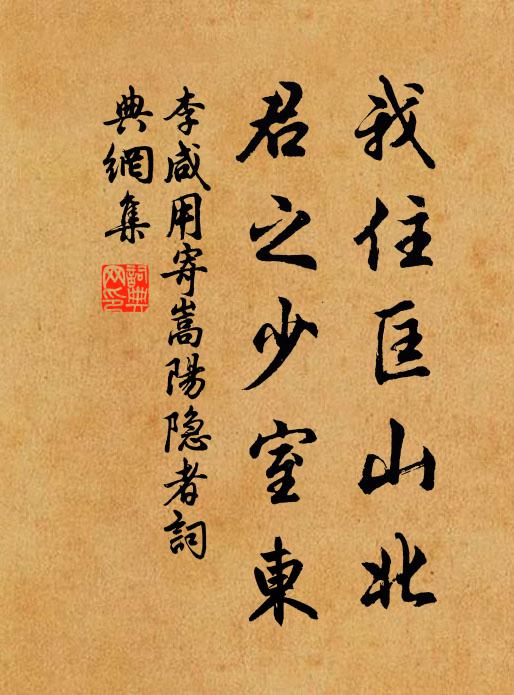 我住匡山北
君之少室東
李咸用寄嵩陽隐者詞
典網集
詞典
网印